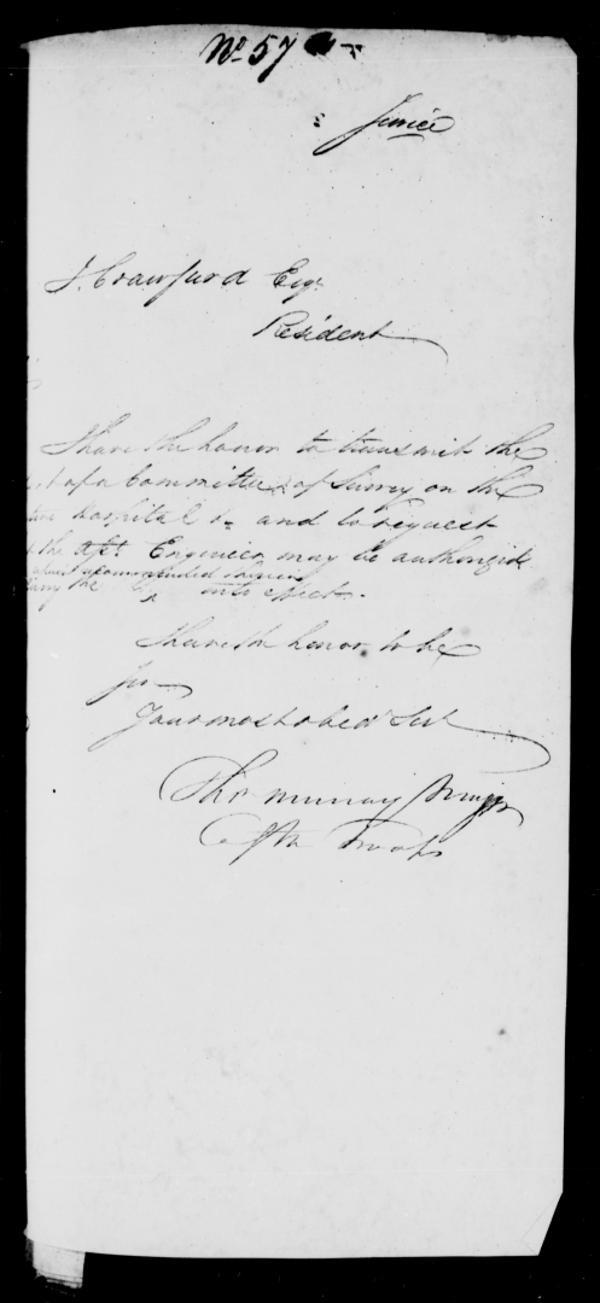 No. 57
J. Crawfurd Esqr.
Resident
I have the honor to transmit the
of a Committee of Survey on the
Hospital &c and to request
the Asst. Engineer may be authorized
recommended therein
the into effect.
I have the honor to be
Sir
Your most obedt Servt
Thos Murray
Troops